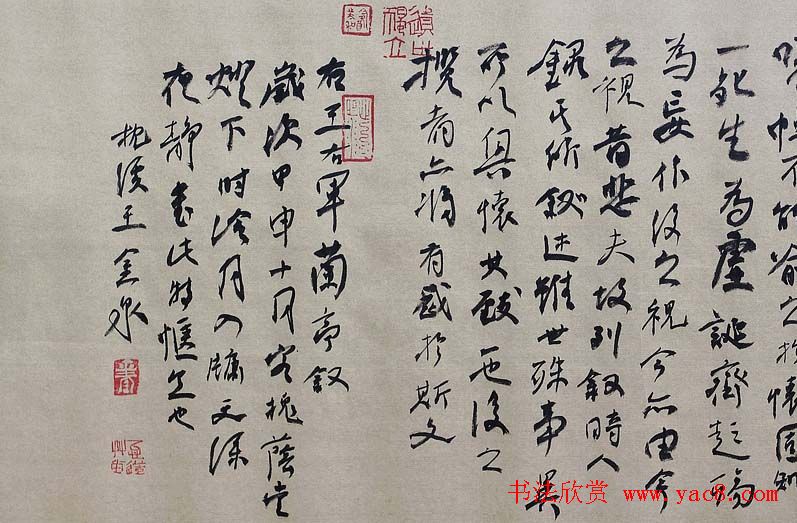 悼不能喻之於懷固知
一死生為虛誕齊彭殤
為妄作後之視今亦由今
之視昔悲夫故列叙時人
錄其所叙述雖世殊事異
所以興懷其致一也後之
攬者亦將有感於斯文
右王右軍蘭亭叙
歲次甲申十月客槐蔭堂
燈下時冷月入牖更深
夜靜書此特愜意也
枕溪王金泉
书法欣赏 www.yac8.com